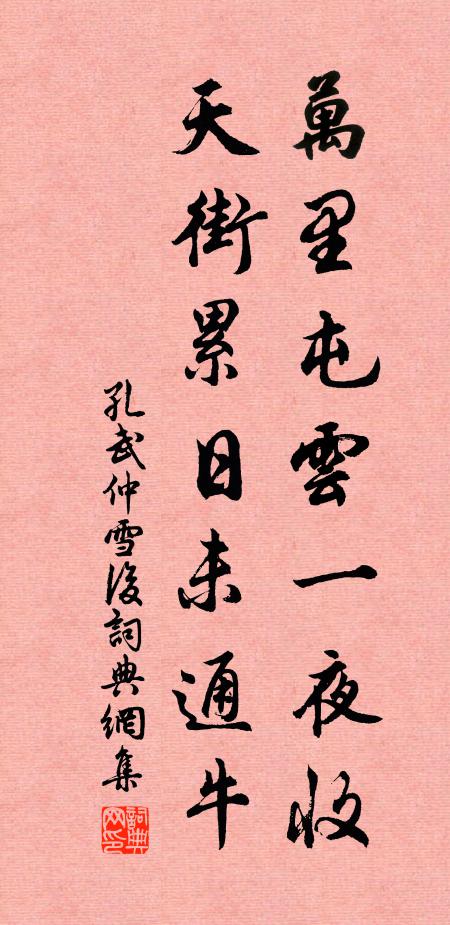 萬里屯雲一夜收
天街累日未通牛
孔武仲雪後詞典網集
詞典網印